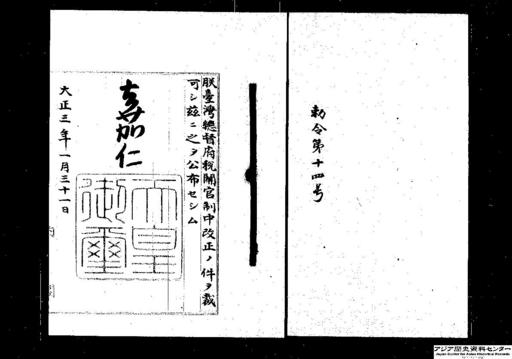 勅令第十四号
朕臺灣總督府税關官制中改正ノ件ヲ裁
可シ茲ニ之ヲ公布セシム
嘉仁
天皇
御璽
大正三年一月三十一日
アジア歴史資料センター
Japan Center for Asian Historical Records